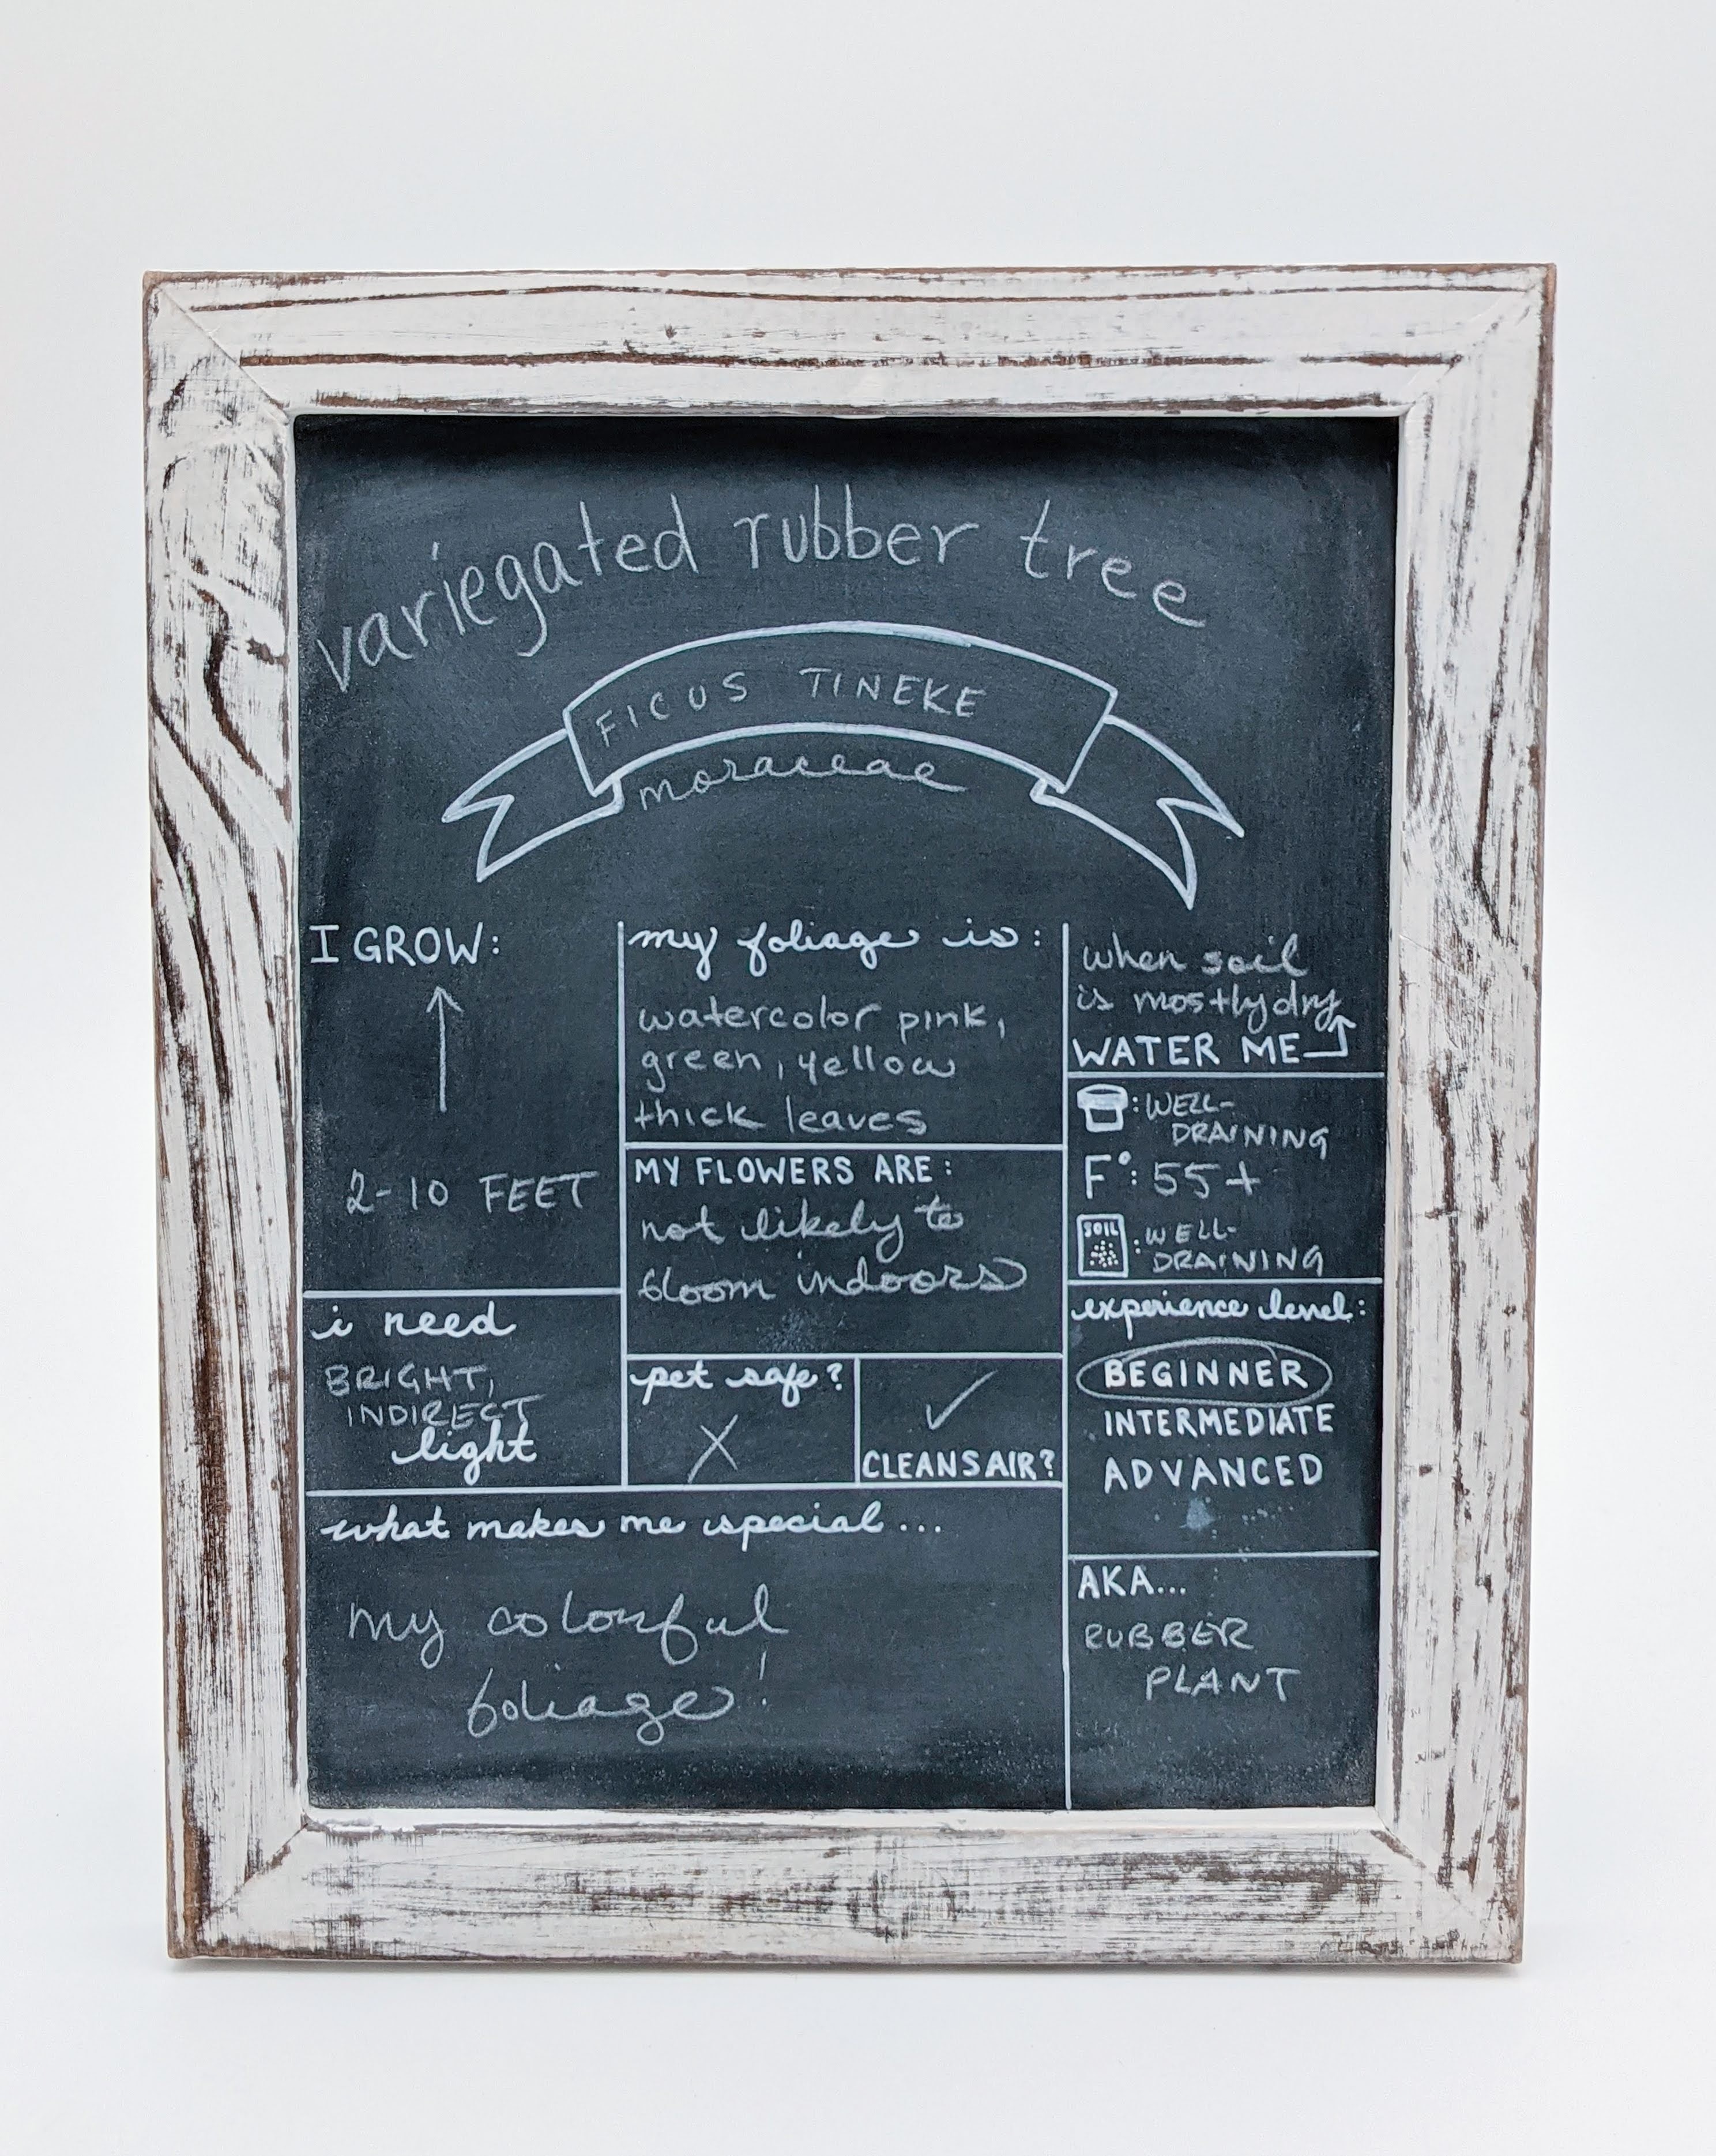 variegated rubber tree
FICUS TINEKE
moraceae
I GROW:
2-10 FEET
i need
BRIGHT,
INDIRECT
light
my foliage is:
watercolor pink,
green, yellow
thick leaves
MY FLOWERS ARE:
not likely to
bloom indoors
pet safe?
X
✓
CLEANS AIR?
what makes me special...
my colorful
foliage!
when soil
is mostly dry
WATER ME
: WELL-
DRAINING
F°: 55+
SOIL
: WELL-
DRAINING
experience level:
BEGINNER
INTERMEDIATE
ADVANCED
AKA...
RUBBER
PLANT